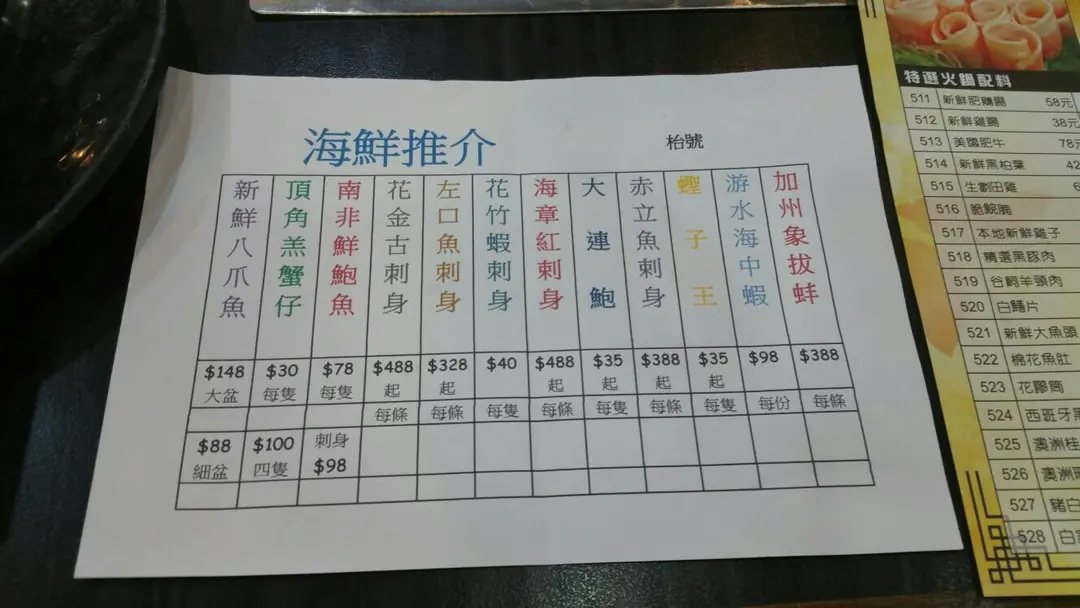 海鮮推介
枱號
新鮮八爪魚
頂角羔蟹仔
南非鮮鮑魚
花金古刺身
左口魚刺身
花竹蝦刺身
海章紅刺身
大連鮑
赤立魚刺身
蟶子王
游水海中蝦
加州象拔蚌
$148 $30 $78 $488 $328 $40 $488 $35 $388 $35 $98 $388
大盆 每隻 每隻 起 起 起 起 起 起
每條 每條 每隻 每條 每隻 每條 每隻 每份 每條
$88 $100 刺身
細盆 四隻 $98
特選火鍋配料
511 新鮮肥鵝腸 58元
512 新鮮雞腸 38元
513 美國肥牛 78元
514 新鮮黑柏葉 42
515 生劏田雞 6
516 脆鯇腩
517 本地新鮮雞子
518 精選黑豚肉
519 谷飼羊頸肉
520 白鱔片
521 新鮮大魚頭
522 棉花魚肚
523 花膠筒
524 西班牙黑
525 澳洲桂
526 澳洲
527 豬白
528 白